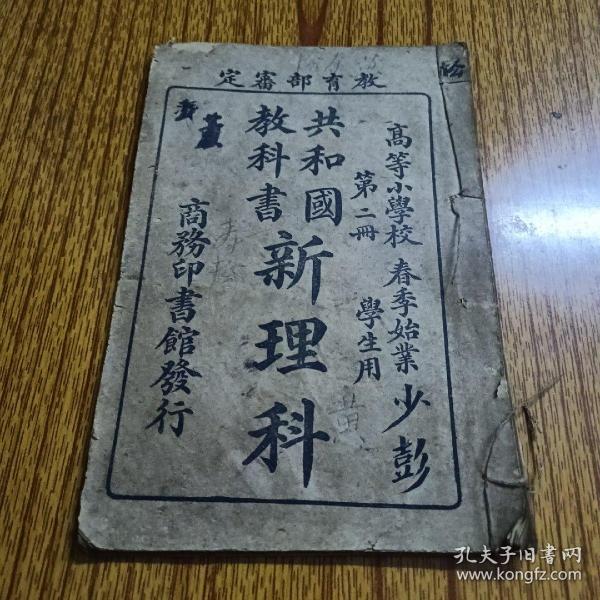 教育部審定
高等小學校 春季始業
少彭
第二冊 學生用
共和國
教科書
新理科
商務印書館發行
黃
孔夫子旧書网
www.kongfz.com